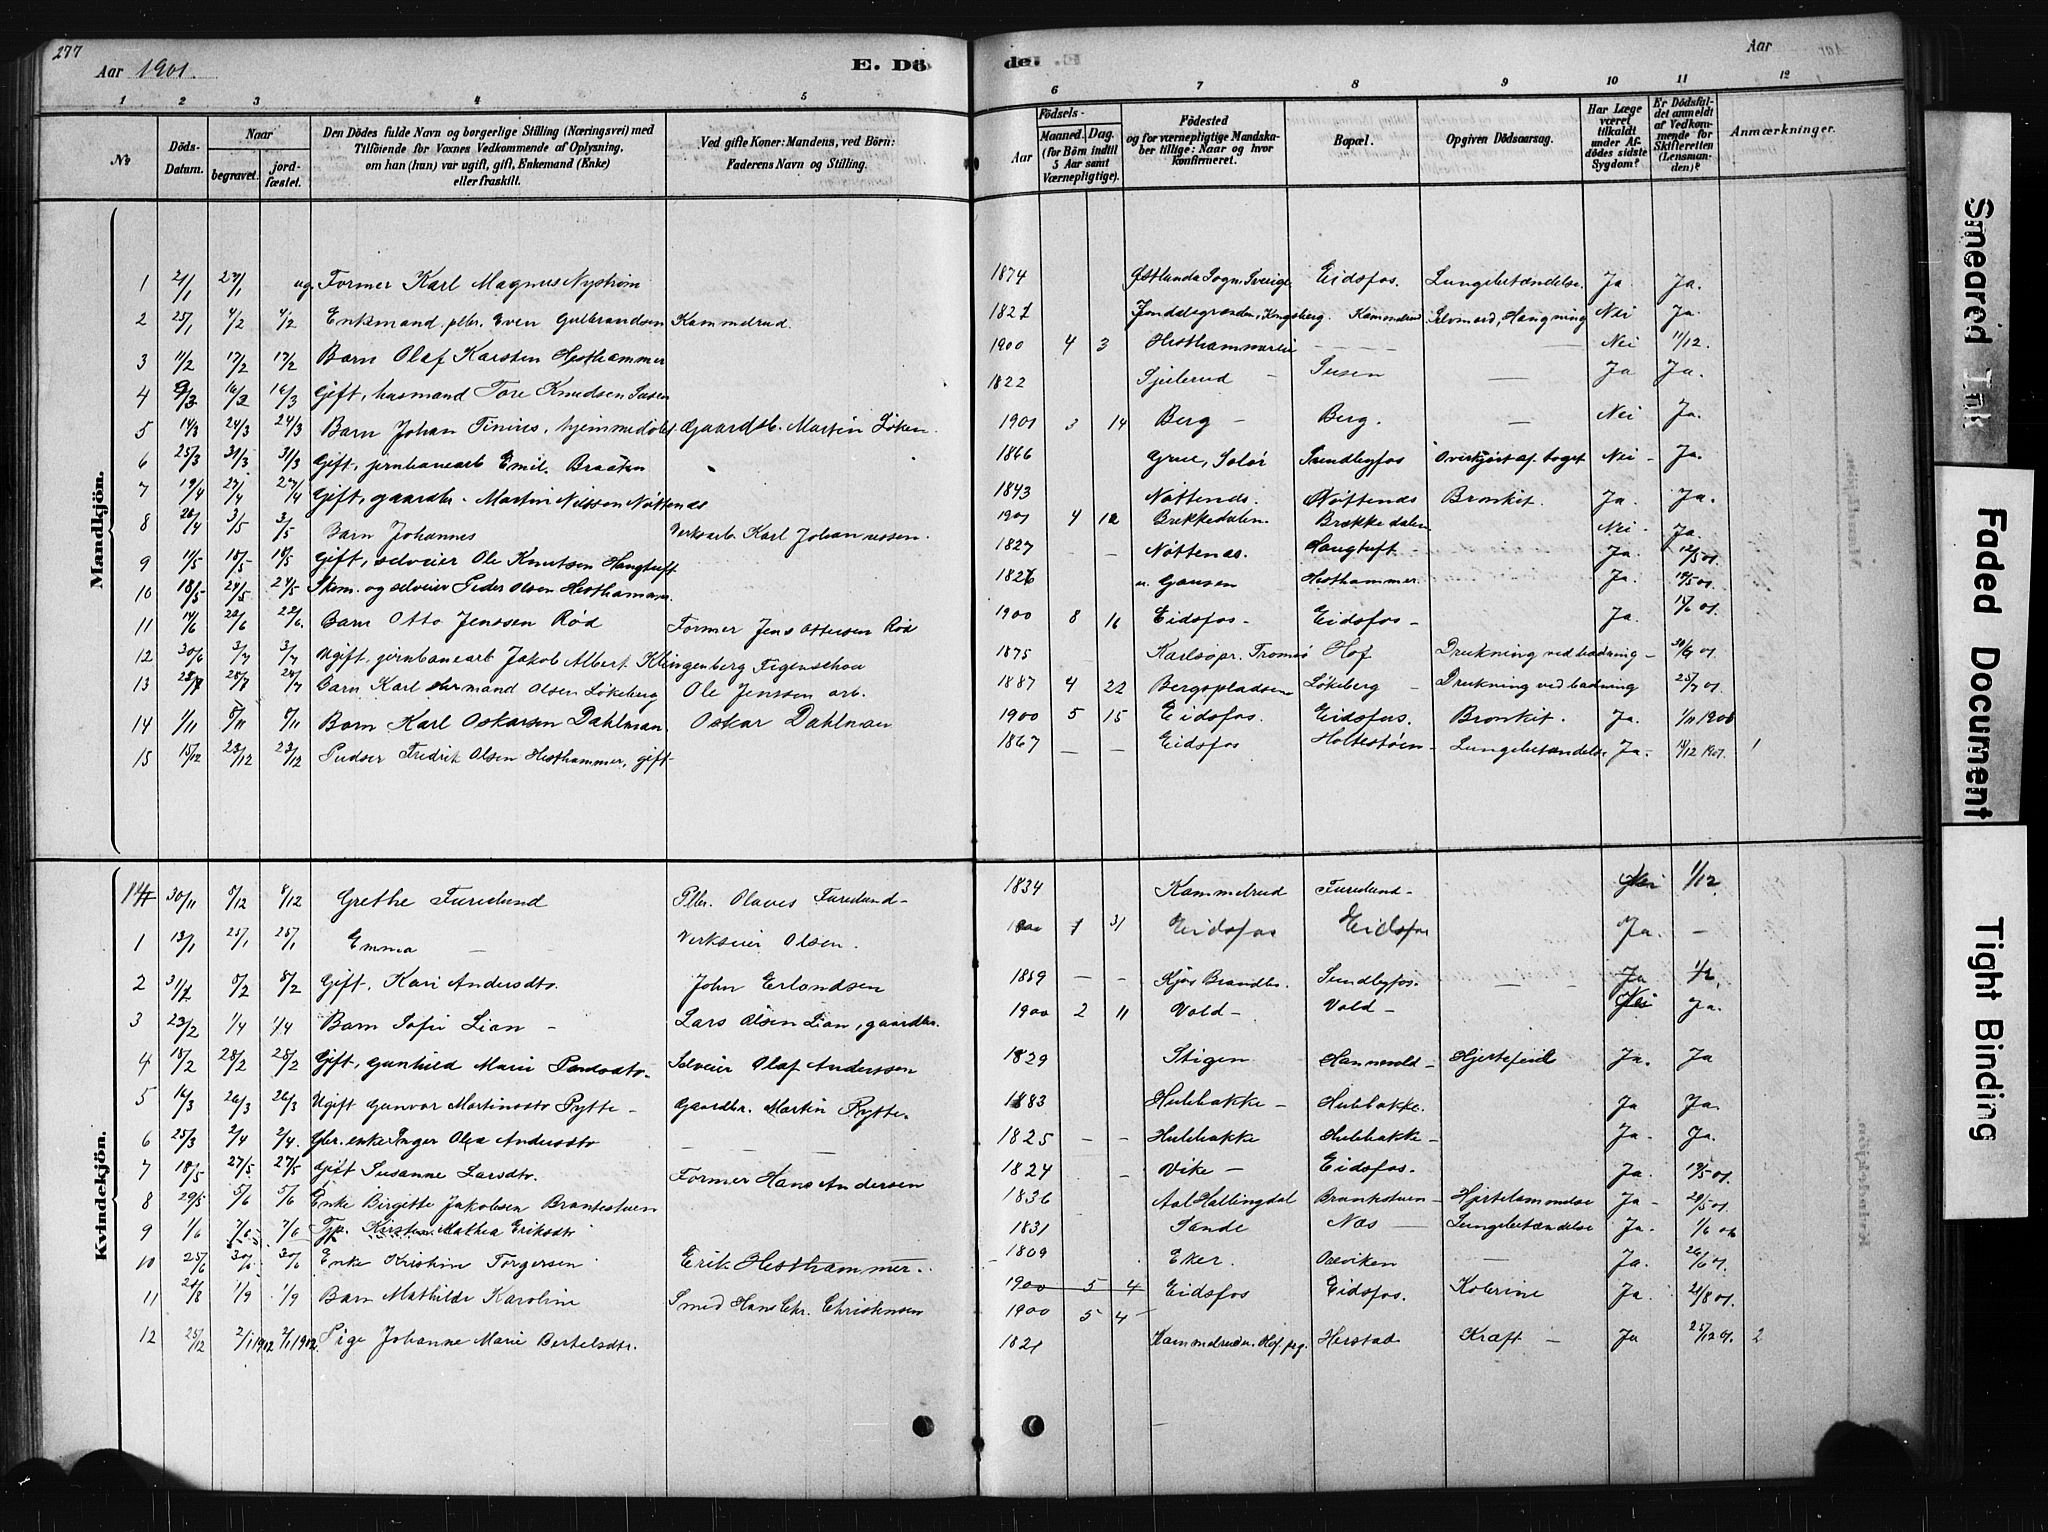 277
Aar 1901.
E. Dö
de.
Aar
1 2 3 4 5 6 7 8 9 10 11 12
No
Döds-Datum.
Naar
begravet. jord-fæstet.
Den Dödes fulde Navn og borgerlige Stilling (Næringsvei) med
Tilföiende for Voxnes Vedkommende af Oplysning,
om han (hun) var ugift, gift, Enkemand (Enke)
eller fraskilt.
Ved gifte Koner: Mandens, ved Börn:
Faderens Navn og Stilling.
Födsels-
Aar
Maaned. Dag.
(for Börn indtil
5 Aar samt
Værnepligtige).
Födested
og for værnepligtige Mandska-
ber tillige: Naar og hvor
konfirmeret.
Bopæl.
Opgiven Dödsaarsag.
Har Læge
været
tilkaldt
under Af-
dødes sidste
Sygdom?
Er Dödsfal-
det anmeldt
af Vedkom-
mende for
Skifteretten
(Lensman-
den)?
Anmærkninger.
Mandkjön.
1 21/1 29/1 ug. Former Karl Magnus Nyström 1874 Sogn, Sverige Eidsfos. Lungebetændelse. Ja. Ja.
2 25/1 4/2 4/2 Enkemand. pltr. Even Gulbrandsen Kammelrud. 1821 Jondalsgrænden, Kongsberg. Kammelrud Selvmord, Hængning Nei Ja.
3 11/2 17/2 17/2 Barn Olaf Karsten Hesthammer 1900 4 3 Hesthammerlie — Nei 11/12.
4 9/3 16/3 16/3 Gift, husmand Tore Knudsen Susen 1822 Sjulerud — Susen — Ja Ja.
5 14/3 24/3 24/3 Barn Johan Tinius, hjemmedøbt. Gaardb. Martin Løken. 1901 3 14 Berg — Berg. — Nei Ja.
6 25/3 31/3 31/3 Gift, jernbanearb Emil. Braaten 1866 Grue, Solør Sundbyfos Overkjørt af toget Nei — Ja.
7 19/4 27/4 27/4 Gift, gaardbr. Martin Nilssen Nøttenes 1843 Nøttenes. Nøttenes Bronkit. Ja. Ja.
8 26/4 3/5 3/5 Barn Johannes Verksarb. Karl Johannessen. 1901 4 12 Brekkedalen. Brekkedalen Nei — Ja.
9 11/5 18/5 18/5 Gift, selveier Ole Knutsen Haugtuft 1827 — — Nøttenes. Haugtuft — Ja. 12/5 01.
10 18/5 24/5 24/5 Skom. og selveier Peder Olsen Hesthammer. 1826 n. Gausen Hesthammer. Ja. 19/5 01.
11 14/6 22/6 22/6. Barn Otto Jenssen Rød Former Jens Ottersen Rød 1900 8 16 Eidsfos — Eidsfos — Ja. 15/6 01.
12 30/6 3/7 3/7 Ugift, jernbanearb Jakob Albert Klingenberg Figenschaa 1875 Karlsø pr. Tromsø Hof Drukning ved badning — 30/6 01.
13 23/7 28/7 28/7 Barn Karl Hermand Olsen Løkeberg Ole Jenssen arb. 1887 4 22 Bergspladsen Løkeberg — Drukning ved badning 25/7 01.
14 1/11 8/11 8/11 Barn Karl Oskarsen Dahlman. Oskar Dahlman 1900 5 15 Eidsfos. Eidsfos. Bronkit. Ja. 1/11 1901
15 15/12 23/12 23/12 Pudser Fredrik Olsen Hesthammer, gift — 1867 — — Eidsfos Holtestøen — Lungebetændelse Ja. 16/12 1901. 1
Kvindekjön.
14 30/11 8/12 8/12 Grethe Furelund Pltr. Olaves Furelund — 1834 Kammelrud Furelund — Nei 1/12.
1 13/1 25/1 25/1 Emma — Verkseier Olsen. 1900 1 31 Eidsfos Eidsfos Ja. —
2 31/1 8/2 8/2 Gift. Kari Andersdtr. John Erlandsen 1859 — — Sundbyfos. — — Ja 1/2.
3 23/2 1/4 1/4 Barn Sofie Lian — Lars Olsen Lian, gaardbr. 1900 2 11 Vold — Vold — Nei Ja.
4 18/2 28/2 28/2 Gift, Gunhild Marie Selveier Olaf Anderssen 1829 Stigen Hannevold — Hjertefeil Ja. Ja
5 16/3 26/3 26/3 Ugift Gunvor Martinsdtr Rytte — Gaardbr. Martin Rytte. 1883 Hulebakke — Hulebakke. Ja Ja.
6 25/3 2/4 2/4. Gbr. enke Inger Olea Andersdtr — — 1825 — — Hulebakke Hulebakke — Ja. Ja.
7 18/5 27/5 27/5 Gift Susanne Larsdtr. Former Hans Andersen 1824 — Vike — Eidsfos. Ja. 19/5 01.
8 29/5 5/6 5/6 Enke Birgitte Jakobsen Branestuen 1836 Aal Hallingdal Branestuen — Hjertelammelse Ja — 29/5 01.
9 1/6 7/6 7/6 Kirsten Mathea Eriksdtr 1831 Sande Næs — Lungebetændelse Ja. 1/6 01
10 25/6 30/6 30/6 Enke Kristine Torgersen Erik Hesthammer. 1809 Eker. Orviken — Ja. 26/6 01.
11 21/8 1/9 1/9 Barn Mathilde Karoline Smed Hans Chr. Christensen 1900 5 4 Eidsfos Eidsfos. Kolerine Ja. 21/8 01.
1900 5 4
12 25/12 2/1 1902 2/1 1902. Pige Johanne Marie Bertelsdtr. 1821 Kammelruden. Hof prg. Herstad Kræft — Ja 25/12 01. 2
Smeared Ink
Faded Document
Tight Binding